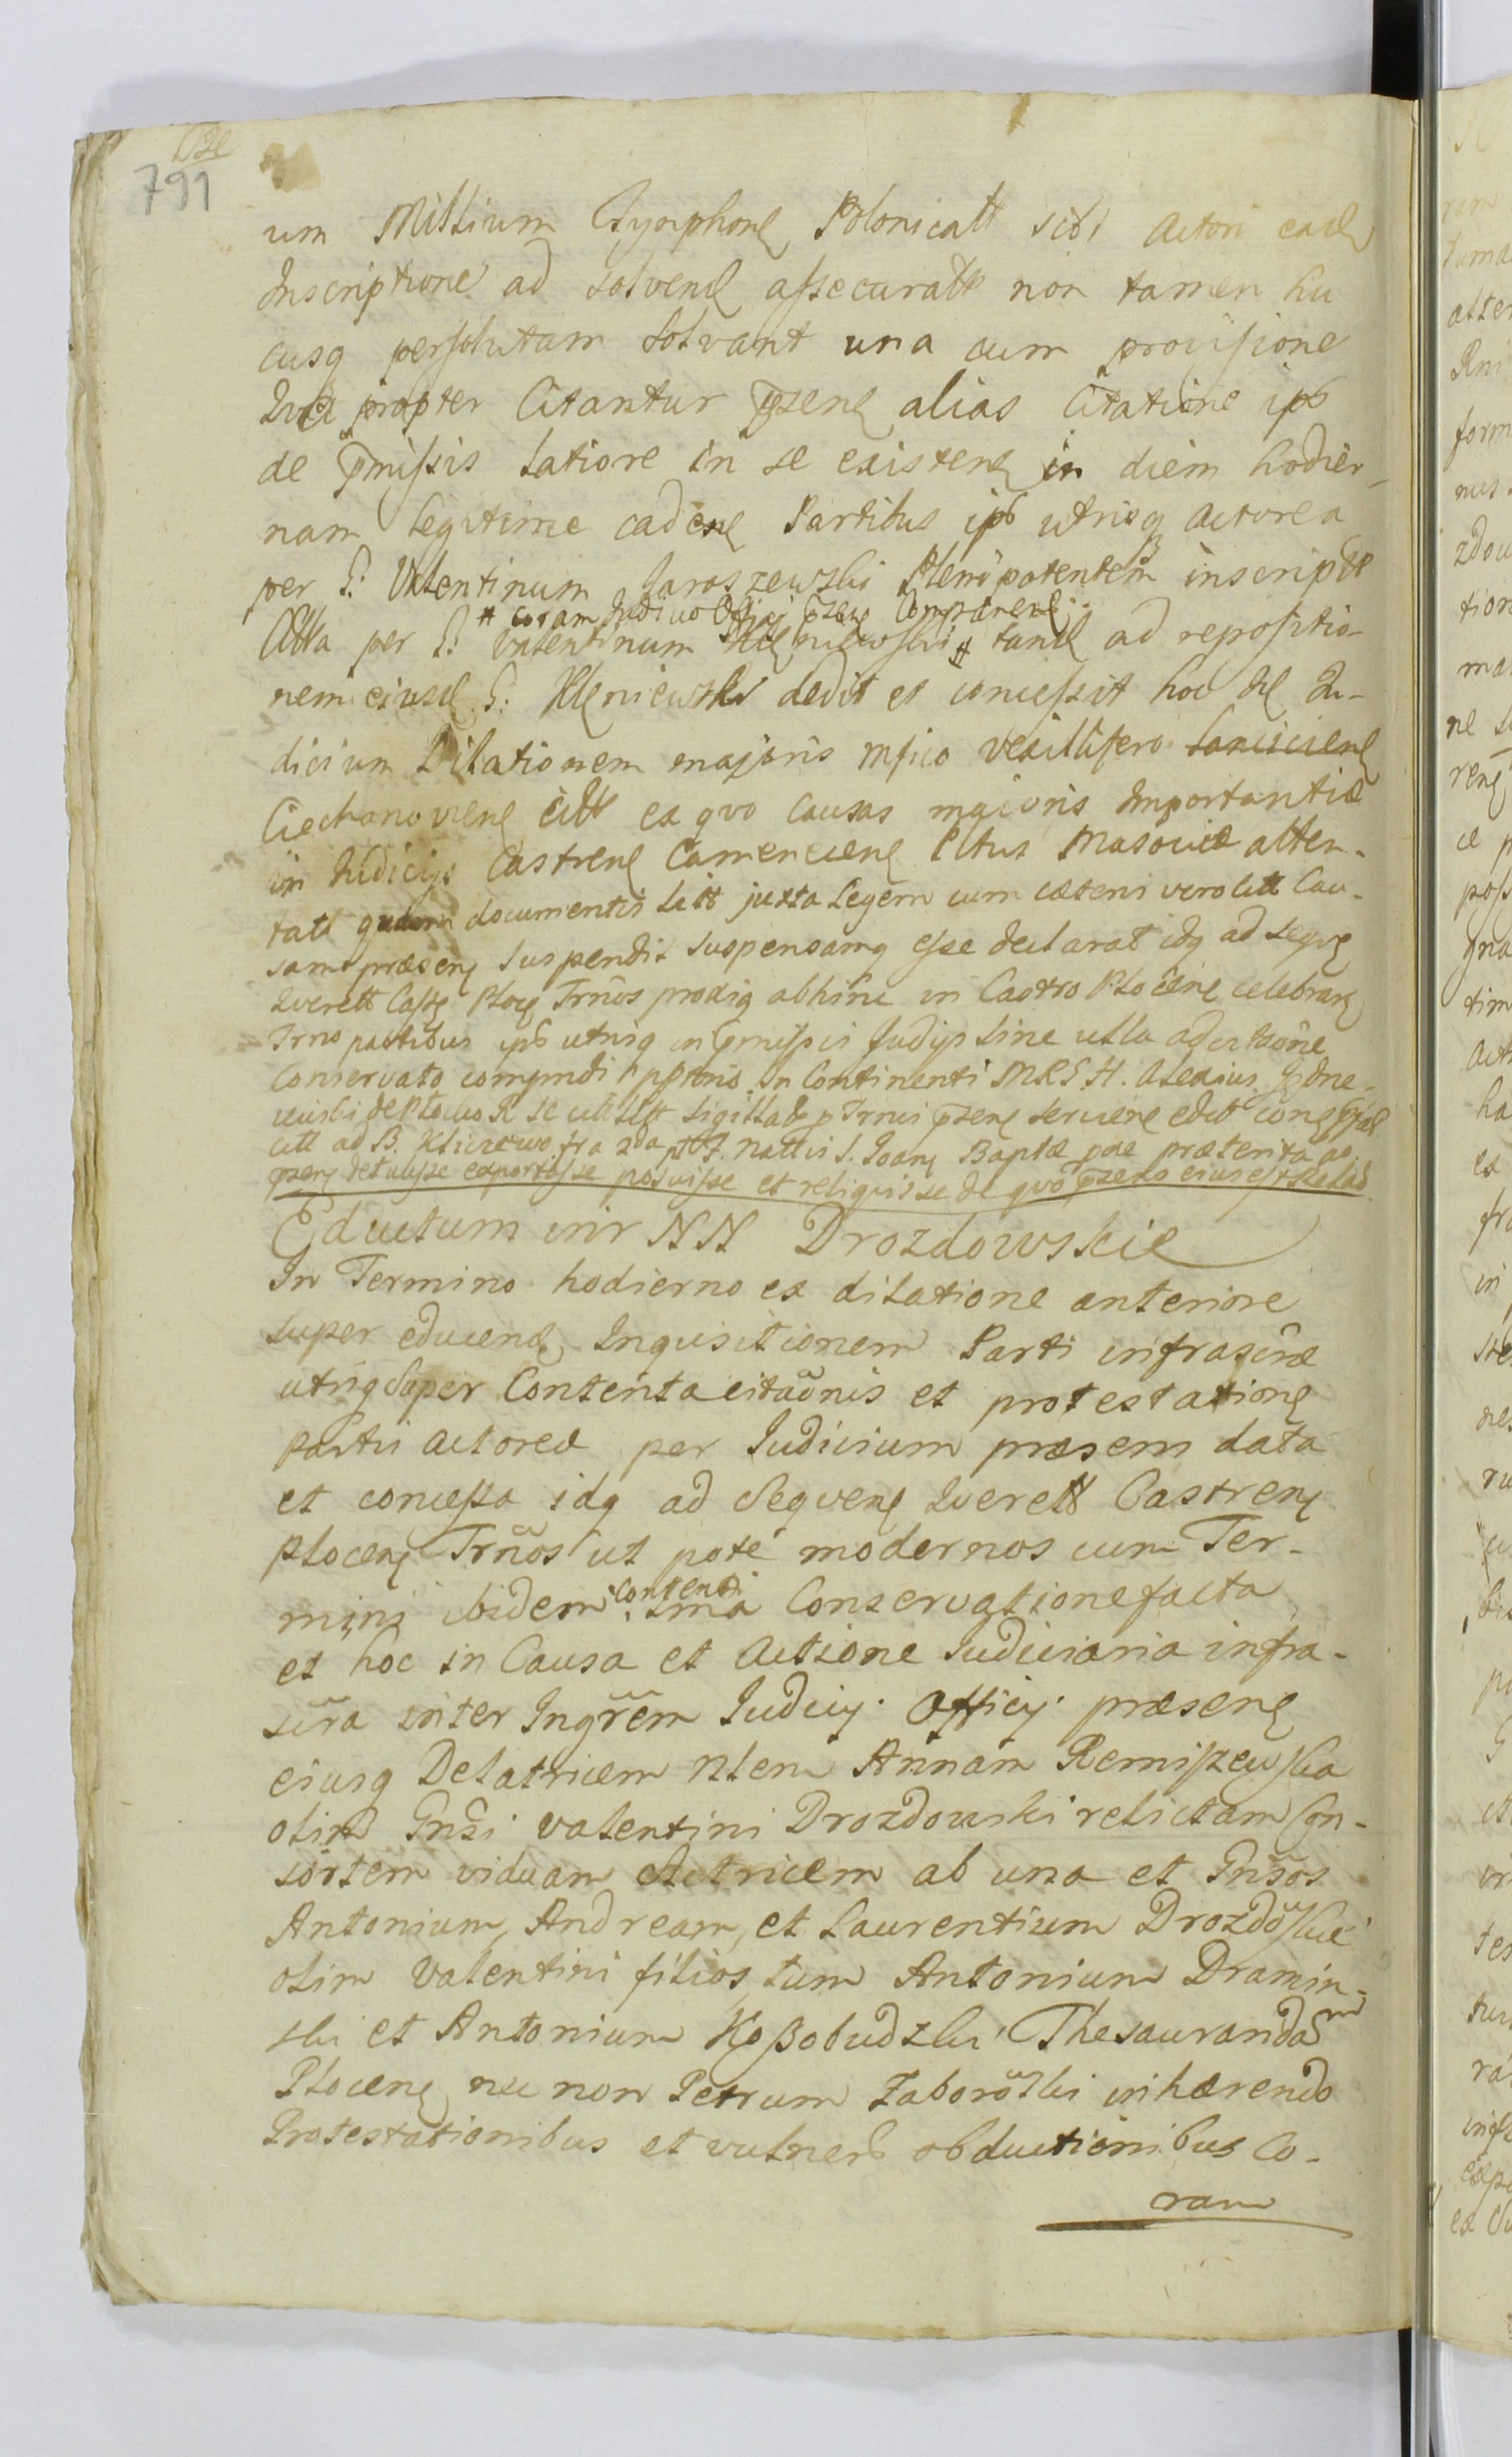 791
um Millium Tymphonę Polonicatt sibi Actori eadę
Inscriptione ad solvenđ assecuratt non tamen hu
cusq persolutam Solvant una cum provisione
Qva propter Citantur pzenę alias Citatione ips
de pmissis latiore in se existenę in diem hodier-
nam legitime cadenę Partibus ips utrisq Actorea
per G: Valentinum Jaroszewski Plenipotentem inscriptt
# coram Judicio Officij pzenę Comparenę
Citta per G: Valentinum Kleniewski # tandę ad repositio-
nem eiusđ G: Kleniewski dedit et concessit hoc se Ju-
dicium Dilationem majoris Mfico Vexillifero Lanciciene
Ciechanoviene citt ex qvo Causas majoris Importantiæ
in Judicijs Castrenę Camenecenę Pltus Masoviæ atten-
tatt documentis litt juxta Legem cum cæteris vero citt Cau-
sam præsenę suspendit suspensamq esse declarat idq ad seqvę
Qverett Castę Plocę Trnos prodiq abhinc in Castro Plocenę celebranę
Trno partibus ips utriq in pmissis Judijs sine ulla adcitaõne
Conservato In Continenti MRS H. Alexius
de Plocko R Sc sigillatt p Trnis pzenę servienę edit
citt ad B. Kliczewo fra 2da pt F. Nattis S. Joanę Baptæ præterita ao
pzenę detulisse exportasse posuisse et reliquisse de qvo pzens eius est Relao
Eductum inr NN Drozdowskie
In Termino hodierno ex dilatione anteriore
super educenđ Inquisitionem Parti infrascræ
utriq super Contenta citaõnis et protestationę
Partis Actoreæ per Judicium præsens data
et concessa idq ad Seqvenę Qverett Castrenę
Plocenę Trños ut pote modernos cum Ter-
mini ibidem contenti sma Conservatione facta
et hoc in Causa et Actione Judiciaria infra-
scra inter Ingrem Judicij Officij præsenę
eiusq Delatricem Nlem Annam Remiszewska
olim Gnsi Valentini Drozdowski relictam Con-
sortem viduam Actricem ab una et Gnsos
Antonium, Andream, et Laurentium Drozdowskie
olim Valentini filios, tum Antonium Dramin-
ski et Antonium Kossobudzki Thesaurandam
Plocenę nec non Petrum Zaborowski inhærendo
Protestationibus et vulnerũ obductionibus Co-
ram